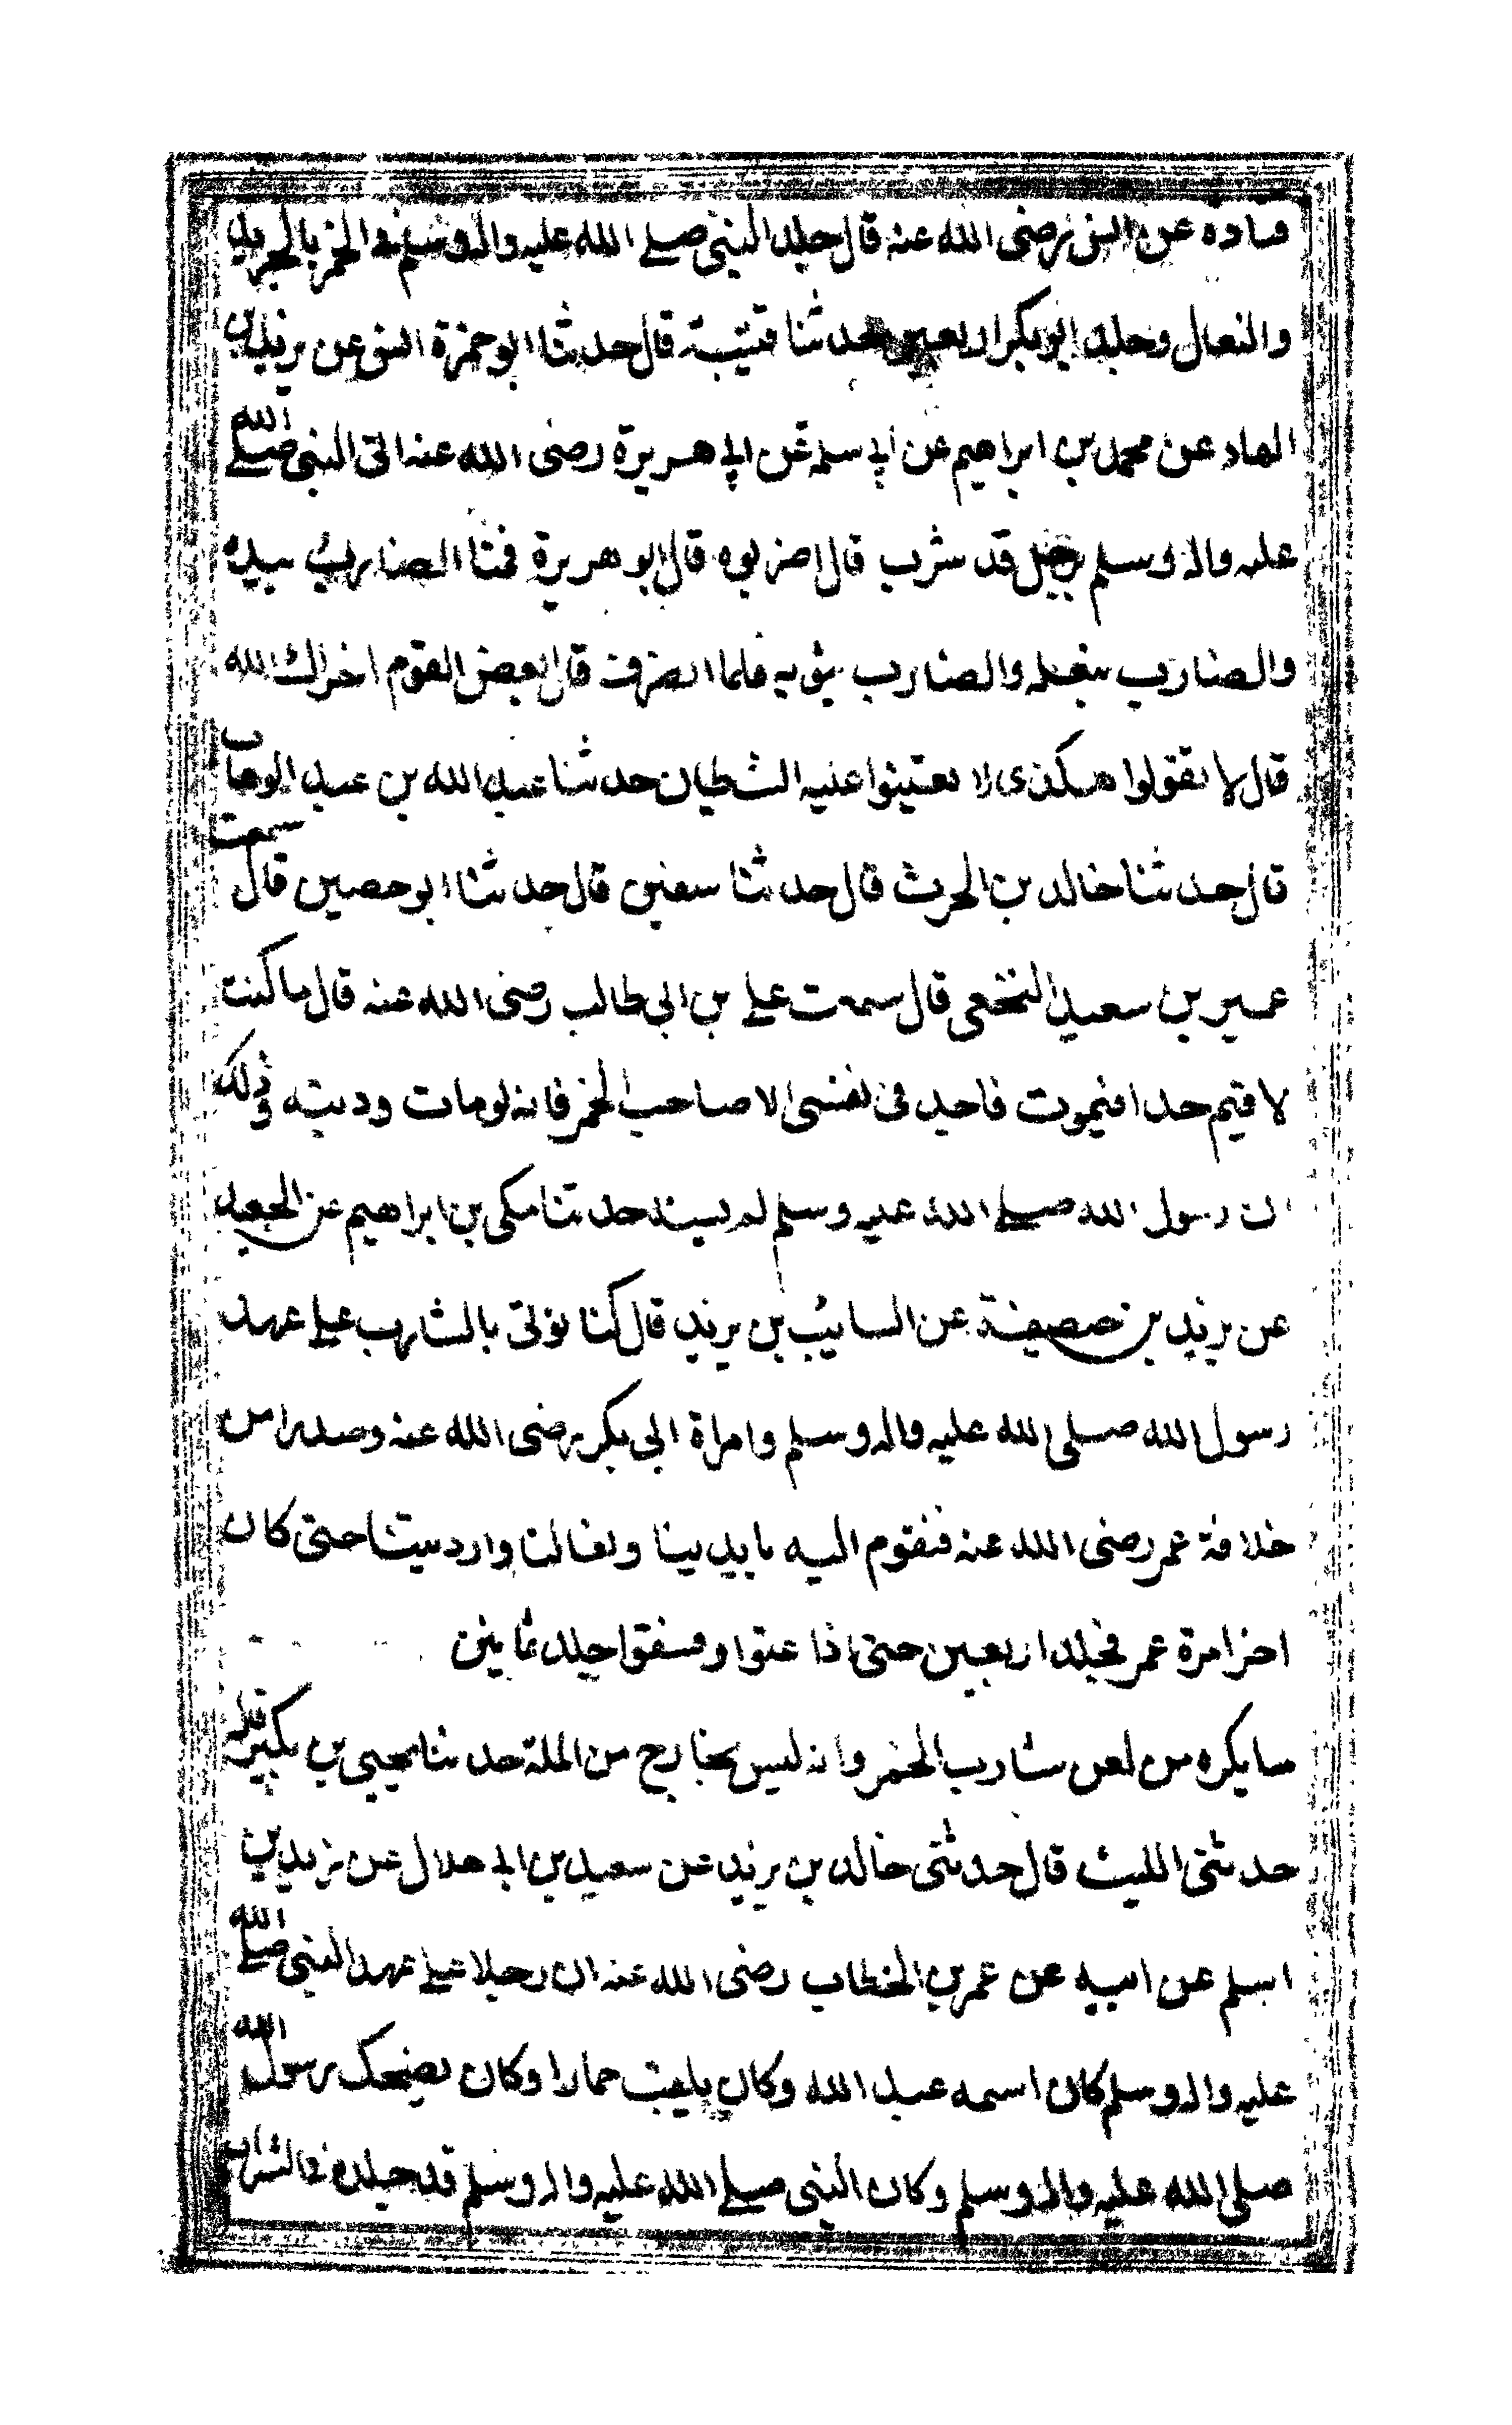 قتادة عن انس رضى الله عنه قال جلد النبى صلے الله عليه واله وسلم فى الخمر بالجريد
والنعال وجلد ابو بكر اربعين حدثنا قتيبة قال حدثنا ابو حمزة انس عن يزيد بن
الهاد عن محمد بن ابراهيم عن ابى سلمة عن ابى هريرة رضى الله عنه اتى النبى صلے الله
عليه واله وسلم برجل قد شرب قال اضربوه قال ابو هريرة فمنا الضارب بيده
والضارب بنعله والضارب بثوبه فلما انصرف قال بعض القوم اخزاك الله
قال لا تقولوا هكذى لا تعينوا عليه الشطيان حدثنا عبد الله بن عبد الوهاب
قال حدثنا خالد بن الحرث قال حدثنا سفين قال حدثنا ابو حصين قال سمعت
عمير بن سعيد النخعى قال سمعت على بن ابى طالب رضى الله عنه قال ما كنت
لاقيم حدا فيموت فاجد فى نفسى الا صاحب الخمر فانه لو مات وديته وذلك
ان رسول الله صلے الله عليه وسلم لم يسنه حدثنا مكى بن ابراهيم عن الجعيد
عن يزيد بن خصيفة عن السايب بن يزيد قال كنا نوتى بالشارب على عهد
رسول الله صلى الله عليه واله وسلم وامراة ابى بكر رضى الله عنه وصدرا من
خلافة عمر رضى الله عنه فنقوم اليه بايدينا ونعالنا وارديتنا حتى كان
اخر امرة عمر فجلد اربعين حتى اذا عتوا وفسقوا جلد ثمانين
ما يكره من لعن شارب الخمر وانه ليس بخارج من الملة حدثنا يحيى بن بكير قال
حدثنى الليث قال حدثنى خالد بن يزيد عن سعيد بن ابى هلال عن زيد بن
اسلم عن ابيه عن عمر بن الخطاب رضى الله عنه ان رجلا على عهد النبى صلے الله
عليه واله وسلم كان اسمه عبد الله وكان يلقب حمارا وكان يضحك رسول الله
صلى الله عليه واله وسلم وكان النبى صلے الله عليه واله وسلم قد جلده فى الشراب